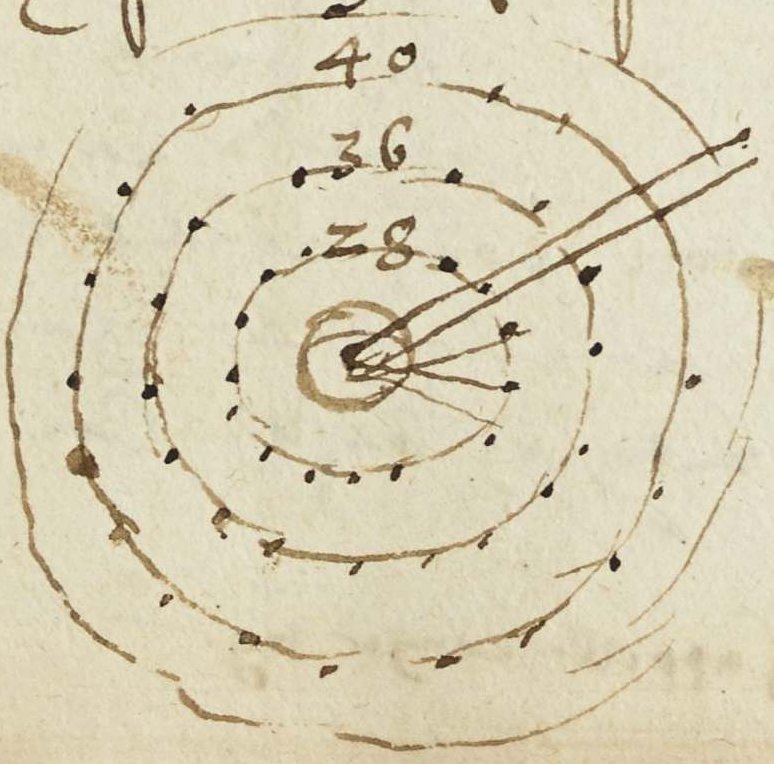 40
36
28